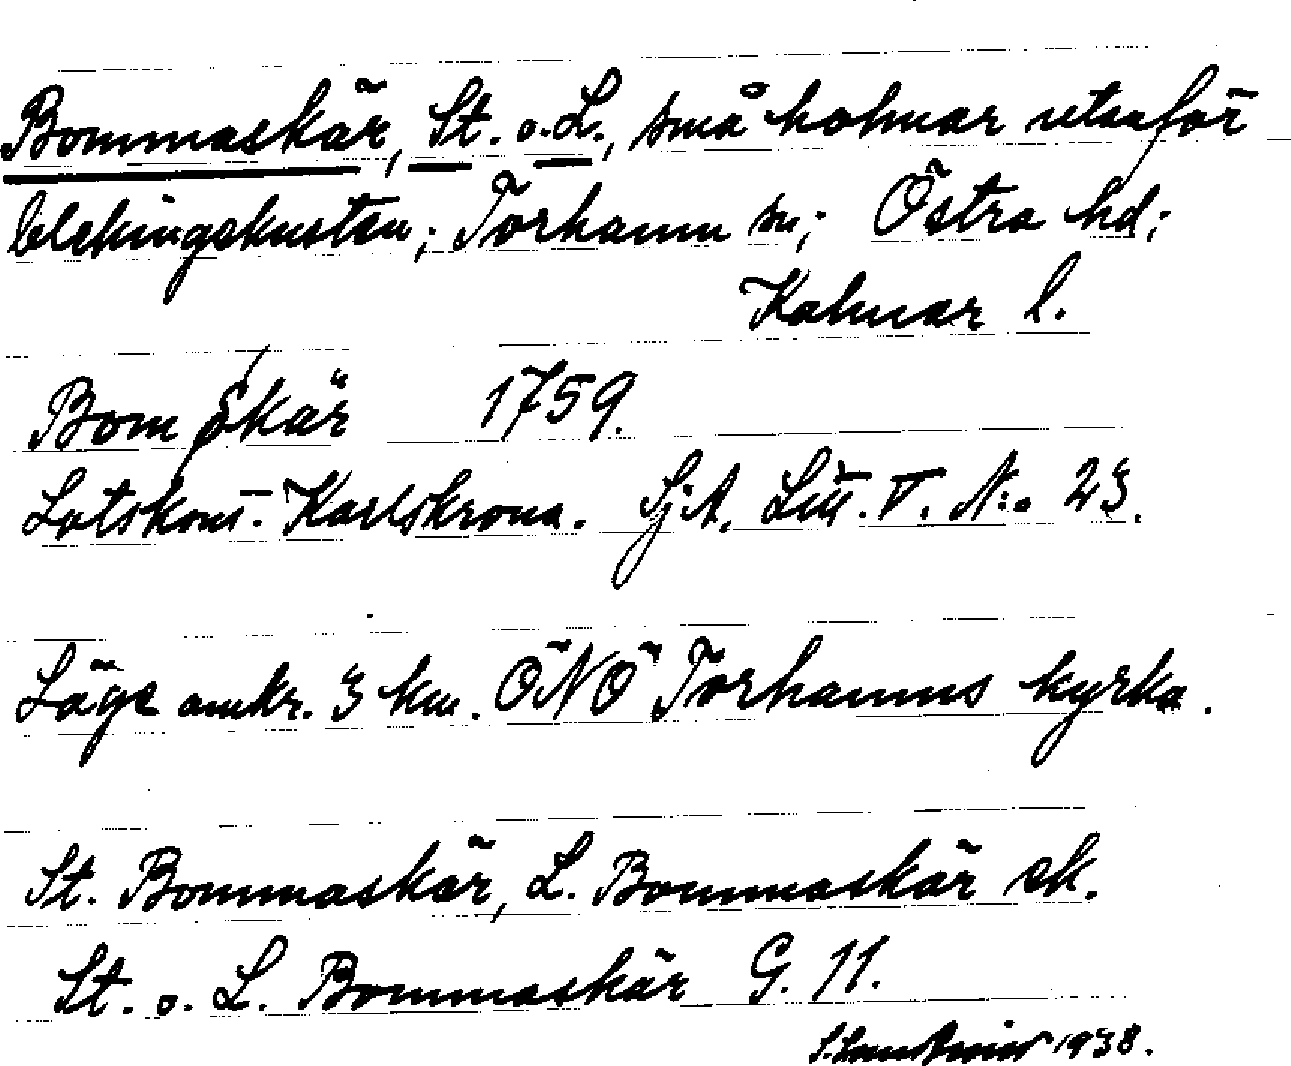 Bommaskär, St. o. L., små holmar utanför
blekingskusten; Torhamn sn; Östra hd;
Kalmar l.
Bom skär 1759.
Lotskont. Karlskrona. SjA. Litt. V. N:o 23.
Läge omkr. 3 km. ÖNÖ Torhamns kyrka.
St. Bommaskär, L. Bommaskär ek.
St. o. L. Bommaskär G. 11.
1938.